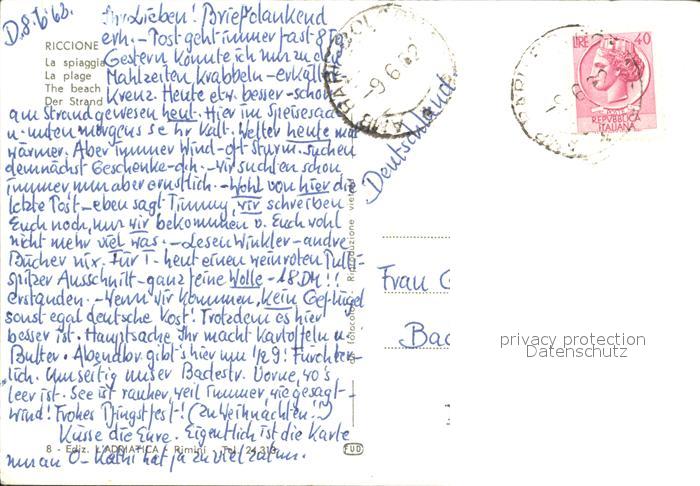 D. 8.6.62.
Ihr Lieben! Brief dankend
erh. - Post geht immer fast 8 T.
Gestern konnte ich nur zu den
Mahlzeiten krabbeln - erkält.
Kreuz. Heute etw. besser - schon
am Strand gewesen heut. Hier im Speisesaal
u. unten morgens sehr kalt. Wetter heute mal
wärmer. Aber immer Wind - oft Sturm. Suchen
demnächst Geschenke - d.h. - wir suchten schon
immer nun aber ernstlich. - Wohl von hier die
letzte Post - eben sagt Timmy, wir schreiben
Euch noch, nur wir bekommen v. Euch wohl
nicht mehr viel was. - Lesen Winkler - andre
Bücher nix. Für T. heut einen weinroten Pulli -
spitzer Ausschnitt - ganz feine Wolle - 18.DM!!
erstanden. - Wenn wir kommen, kein Geflügel
sonst egal deutsche Kost! Trotzdem es hier
besser ist. Hauptsache Ihr macht Kartoffeln u.
Butter. Abendbr. gibt's hier um 1/2 9! Fürchter-
lich. Umseitig unser Badestr. Vorne,
leer ist. See ist rauher, weil immer, wie gesagt -
Wind! Frohes Pfingstfest! (Zu Weihnachten!)
Küsse die Eure. Eigentlich ist die Karte
nur an O - Kathi hat ja zu viel
RICCIONE
La spiaggia
La plage
The beach
Der Strand
Deutschland.
Frau G
Bad
LIRE 40
POSTE
REPVBBLICA
ITALIANA
-9.6.62
Fotocolor - Riproduzione vietata
8 - Ediz. L'ADRIATICA - Rimini - Tel. 24.313
privacy protection
Datenschutz